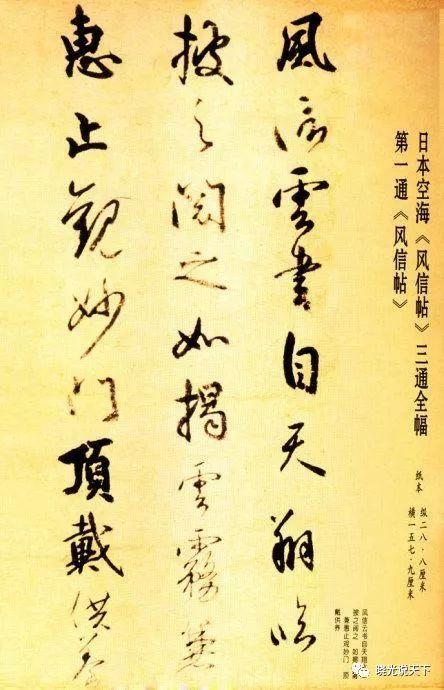 日本空海《风信帖》三通全幅
第一通《风信帖》
纸本 纵二八·八厘米
横一五七·九厘米
風信雲書自天翔臨
披之閱之如揭雲霧兼
惠止觀妙門頂戴供養
风信云书自天翔临
披之阅之 如揭云雾
兼惠止观妙门 顶
戴供养
晓光说天下